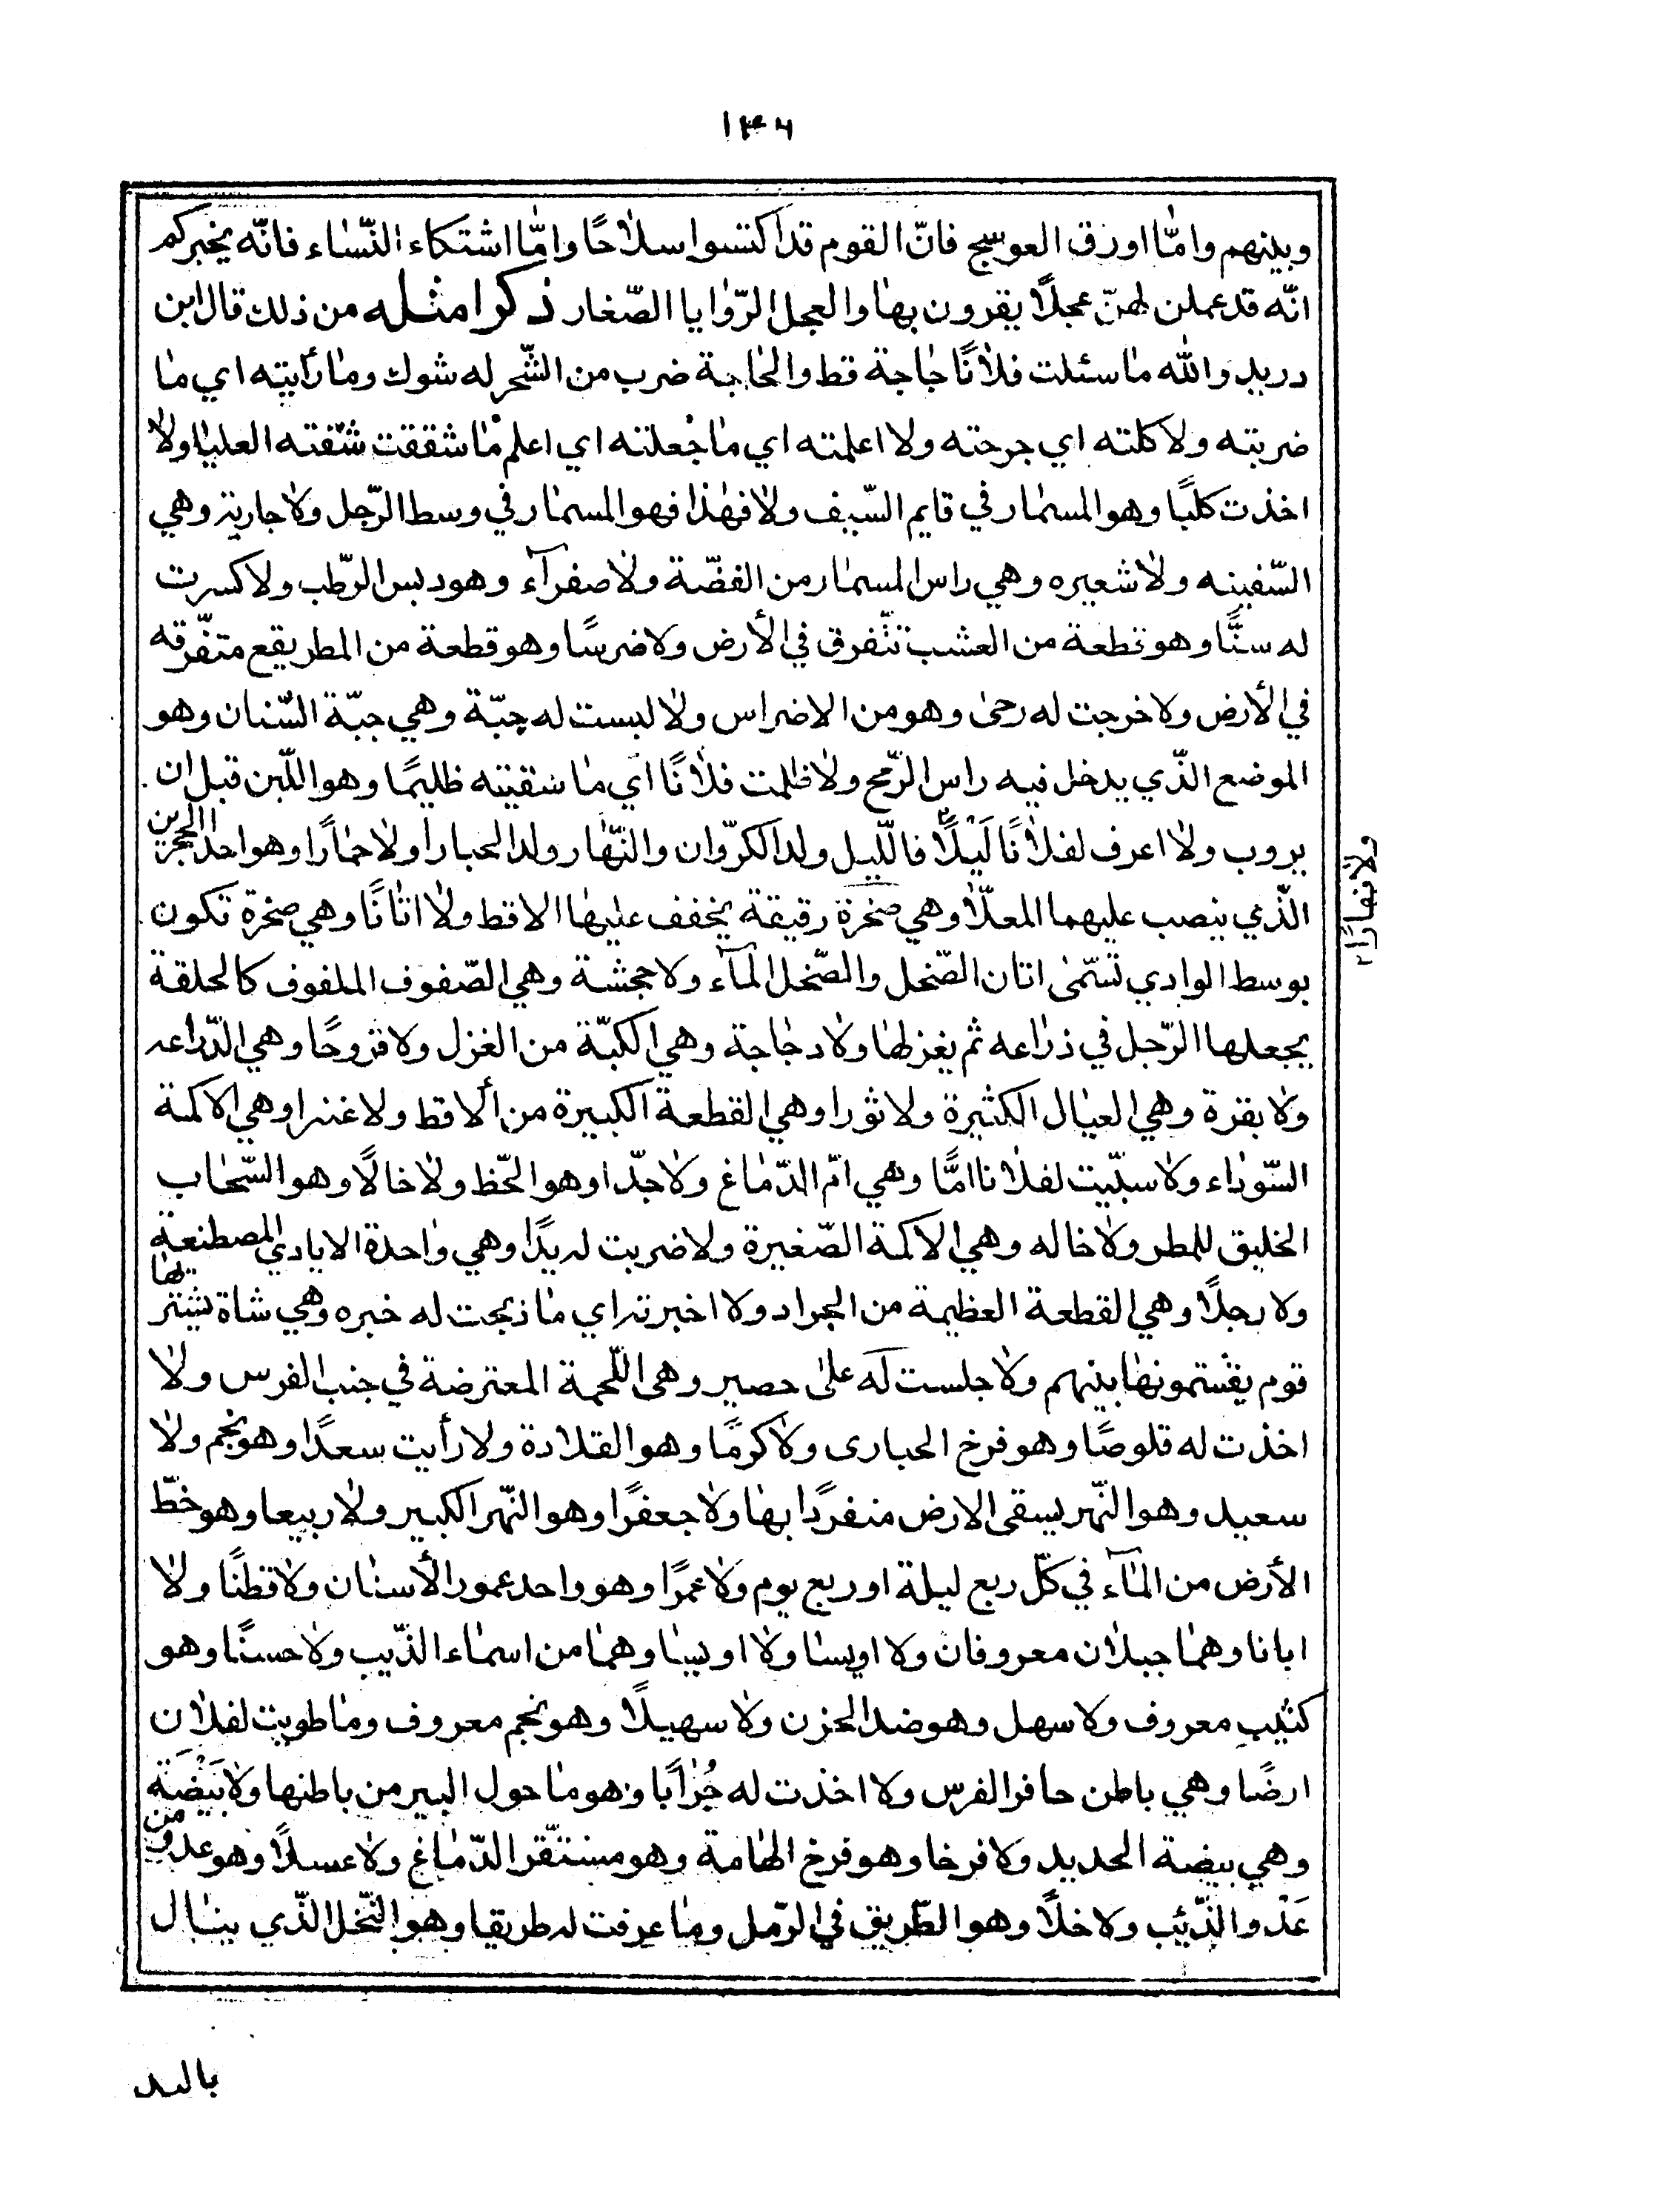 ١٣٦
وبينهم وامّا اورق العوسج فانّ القوم قد اكتسوا سلاحًا وامّا اشتكاء النّساء فانّه يخبركم
انّه قد عملن لهنّ عجلًا يقرون بها والعجل الرّوايا الصّغار ذكر امثله من ذلك قال ابن
دريد والله ما سئلت فلانًا حاجة قط والحاجة ضرب من الشّجر له شوك وما رأيته اي ما
ضربته ولا كلته اي جرحته ولا اعلمته اي ما جعلته اي اعلم ما شققت شفته العليا ولا
اخذت كلبًا وهو المسمار في قايم السّيف ولا فهذا فهو المسمار في وسط الرّجل ولا جارية وهي
السّفينه ولا شعيره وهي راس المسمار من الفضّة ولا صفرآء وهو دبس الرّطب ولا كسرت
له سنًّا وهو قطعة من العشب تتّفرق في الأرض ولا ضرسًا وهو قطعة من المطر يقع متفّرقه
في الأرض ولا خرجت له رحى وهو من الاضراس ولا لبست له جبّة وهي جبّة السّنان وهو
الموضع الذّي يدخل فيه راس الرّمح ولا ظلمت فلانًا اي ما سقيته ظليمًا وهو اللّبن قبل ان
يروب ولا اعرف لفلانًا لَيْلًا فاللّيل ولد الكرّوان والنّهار ولد الحبارا ولا حمارًا وهو احد الحجرين
ولا نهارًا
الذّي ينصب عليهما المعلّا وهي صخرة رقيقة يخفف عليها الاقط ولا اتانًا وهي صخرة تكون
بوسط الوادي تسّمى اتان الضّحل والضّحل المآء ولا جحشة وهي الصّفوف الملفوف كالحلقة
يجعلها الرّجل في ذراعه ثم يغزلها ولا دجاجة وهي الكبّة من الغزل ولا فروجًا وهي الدّراعه
ولا بقرة وهي العيال الكثيرة ولا ثورا وهي القطعة الكبيرة من ألاقط ولا عنزا وهي الاكمة
السّوداء ولا سبّيت لفلانا امًّا وهي امّ الدّماغ ولا جدّا وهو الحّظ ولا خالًا وهو السّحاب
الخليق للمطر ولا خاله وهي الاكمة الصّغيرة ولا ضربت له يدًا وهي واحدة الايادي المصطنعة
ولا رجلًا وهي القطعة العظيمة من الجراد ولا اخبرته اي ما ذبحت له خبره وهي شاة يشتر لها
قوم يقسّتمونها بينهم ولا جلست له على حصير وهى اللّحمة المعترضة في جنب الفرس ولا
اخذت له قلوصًا وهو فرخ الحبارى ولا كرمًا وهو القلادة ولا رأيت سعدًا وهو نجم ولا
سعيد وهو النّهر يسقى الارض منفردًا بها ولا جعفرًا وهو النّهر الكبير ولا ربيعا وهو خطّ
الأرض من المآء في كلّ ربع ليلة او ربع يوم ولا عمرًا وهو واحد عمور الأسنان ولا قطنًا ولا
ابانا وهما جبلان معروفان ولا اويسا ولا اويبا وهما من اسماء الذّيب ولا حسنًا وهو
كثيب معروف ولا سهل وهو ضد الحزن ولا سهيلًا وهو نجم معروف وما طويت لفلان
ارضًا وهي باطن حافر الفرس ولا اخذت له جُرابًا وهو ما حول البير من باطنها ولا بَيْضَة
وهي بيضة الحديد ولا فرخا وهو فرخ الهامة وهو مستّقر الدّماغ ولا عسلًا وهو عدو من
عَدْو الذّئب ولا خلًّا وهو الطّريق في الرّمل وما عرفت له طريقا وهو النّخل الذّي ينال
باليد